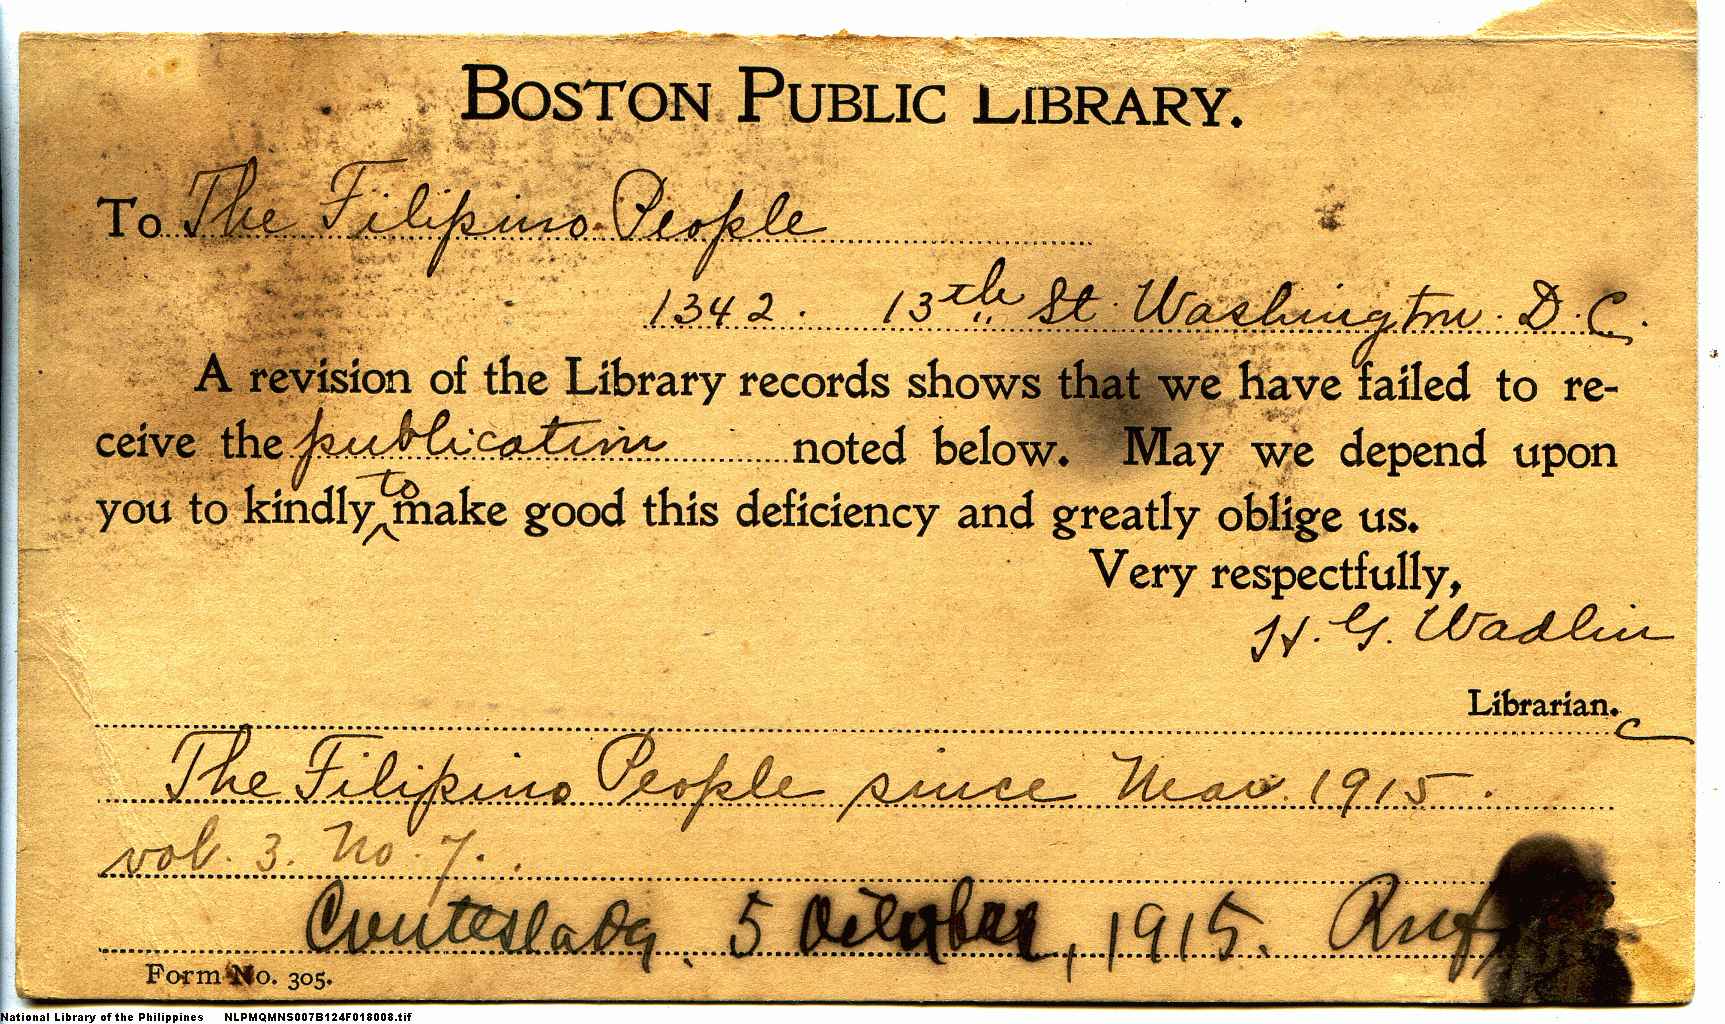 BOSTON PUBLIC LIBRARY.
To The Filipino People
1342. 13th St. Washington. D.C.
A revision of the Library records shows that we have failed to re-
ceive the publication noted below. May we depend upon
you to kindly to make good this deficiency and greatly oblige us.
Very respectfully,
H. G. Wadlin
Librarian.
The Filipino People since Mar. 1915.
vol. 3. No. 7.
Contestada. 5 October, 1915.
Form No. 305.
National Library of the Philippines NLPMQMNS007B124F018008.tif